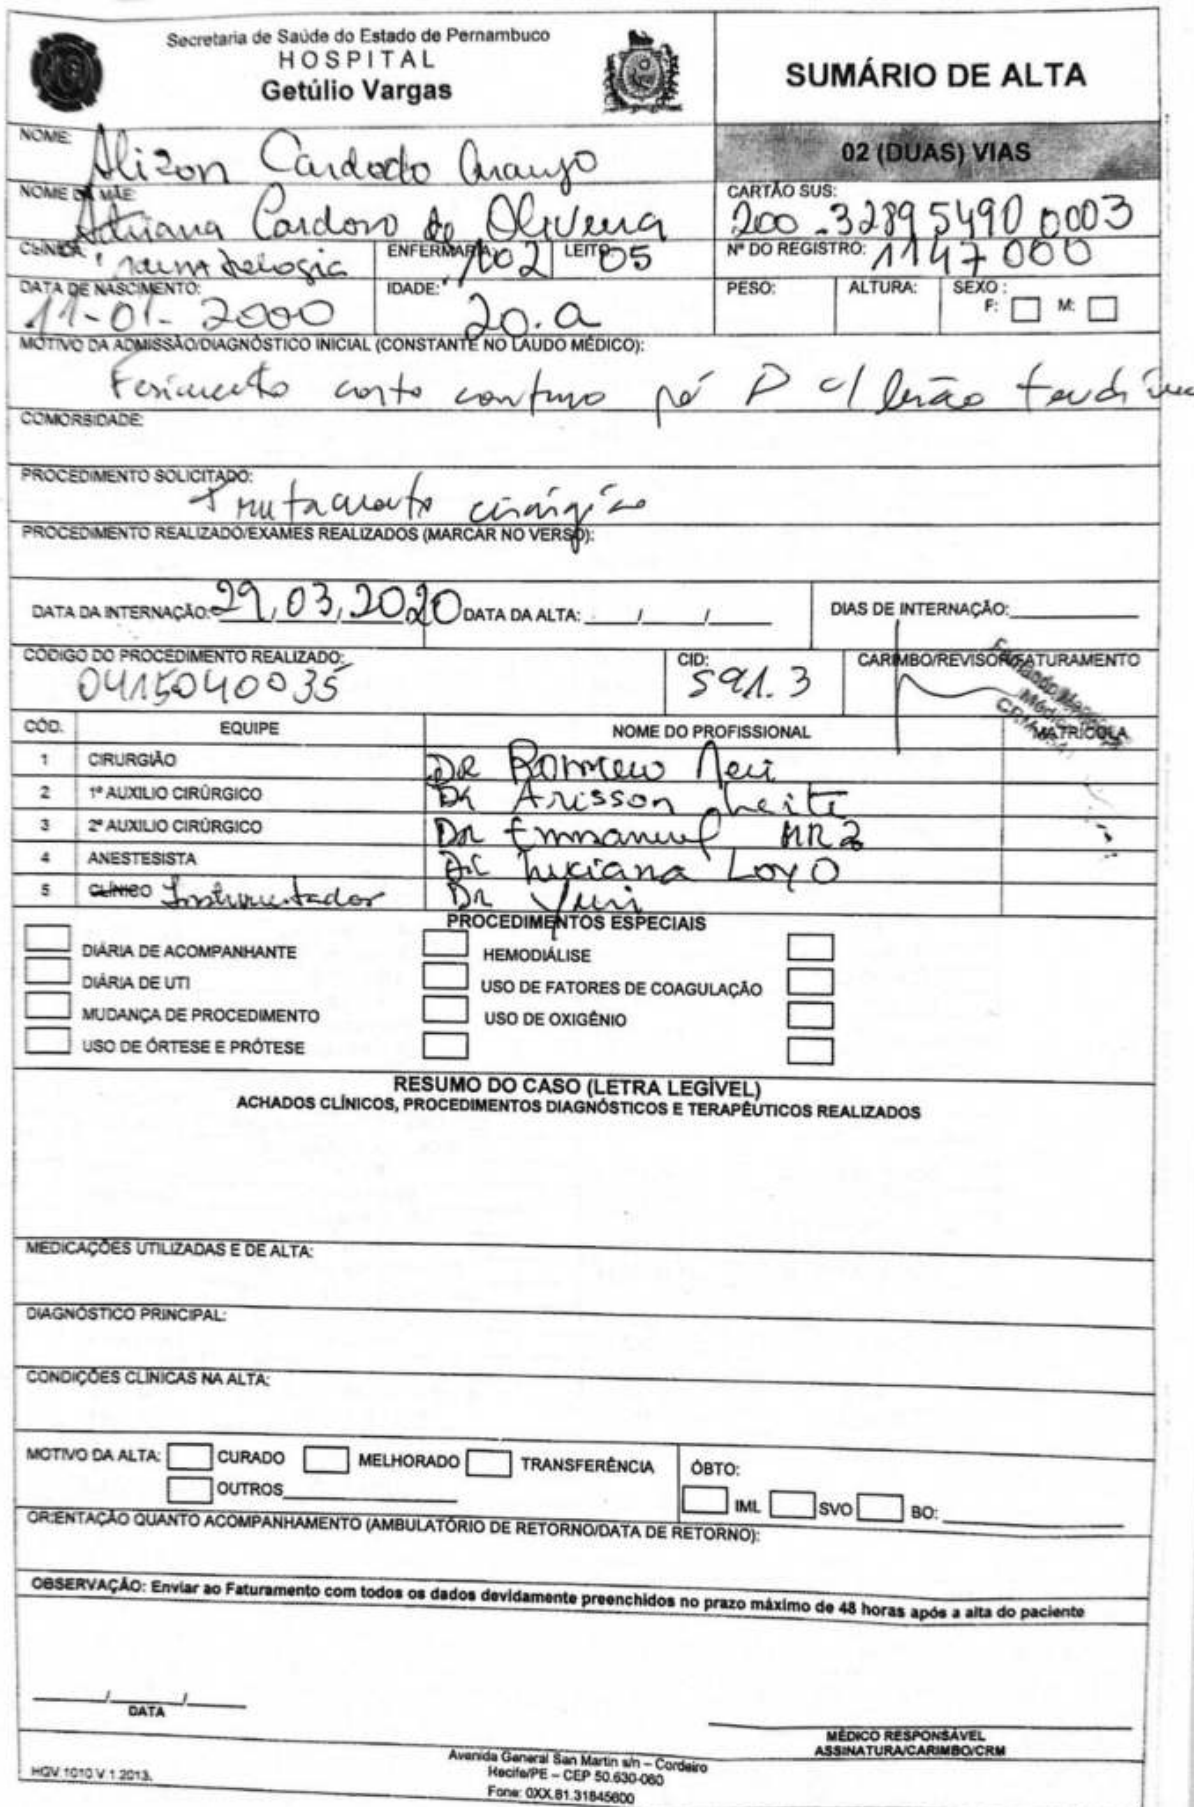 Secretaria de Saúde do Estado de Pernambuco
HOSPITAL
Getúlio Vargas
SUMÁRIO DE ALTA
02 (DUAS) VIAS
NOME: Alizon Cardodo Araujo
NOME DA MÃE: Adriana Cardoso de Oliveira
CARTÃO SUS: 200.3289 5490 0003
CLÍNICA: Traumatologia ENFERMARIA: 102 LEITO: 05 Nº DO REGISTRO: 1147000
DATA DE NASCIMENTO: 11-01-2000 IDADE: 20.a PESO: ALTURA: SEXO: F: M:
MOTIVO DA ADMISSÃO/DIAGNÓSTICO INICIAL (CONSTANTE NO LAUDO MÉDICO):
Ferimento corto contuso pé D c/ lesão
COMORBIDADE:
PROCEDIMENTO SOLICITADO:
Tratamento cirúrgico
PROCEDIMENTO REALIZADO/EXAMES REALIZADOS (MARCAR NO VERSO):
DATA DA INTERNAÇÃO: 29,03,2020 DATA DA ALTA: ____/____/____ DIAS DE INTERNAÇÃO:
CÓDIGO DO PROCEDIMENTO REALIZADO: 0415040035 CID: S91.3 CARIMBO/REVISOR/FATURAMENTO
Fernando
Médico
CÓD. EQUIPE NOME DO PROFISSIONAL MATRÍCULA
1 CIRURGIÃO DR Romeu
2 1º AUXILIO CIRÚRGICO DR Arisson Leite
3 2º AUXILIO CIRÚRGICO DR Emmanuel MR2
4 ANESTESISTA Dr Luciana Loyo
5 CLÍNICO Instrumentador DR Yuri
PROCEDIMENTOS ESPECIAIS
DIÁRIA DE ACOMPANHANTE HEMODIÁLISE
DIÁRIA DE UTI USO DE FATORES DE COAGULAÇÃO
MUDANÇA DE PROCEDIMENTO USO DE OXIGÊNIO
USO DE ÓRTESE E PRÓTESE
RESUMO DO CASO (LETRA LEGÍVEL)
ACHADOS CLÍNICOS, PROCEDIMENTOS DIAGNÓSTICOS E TERAPÊUTICOS REALIZADOS
MEDICAÇÕES UTILIZADAS E DE ALTA:
DIAGNÓSTICO PRINCIPAL:
CONDIÇÕES CLÍNICAS NA ALTA:
MOTIVO DA ALTA: CURADO MELHORADO TRANSFERÊNCIA ÓBTO:
OUTROS IML SVO BO:
ORIENTAÇÃO QUANTO ACOMPANHAMENTO (AMBULATÓRIO DE RETORNO/DATA DE RETORNO):
OBSERVAÇÃO: Enviar ao Faturamento com todos os dados devidamente preenchidos no prazo máximo de 48 horas após a alta do paciente
____/____/____
DATA
MÉDICO RESPONSÁVEL
ASSINATURA/CARIMBO/CRM
HGV.1010.V.1.2013.
Avenida General San Martin s/n – Cordeiro
Recife/PE – CEP 50.630-060
Fone: 0XX.81.31845600